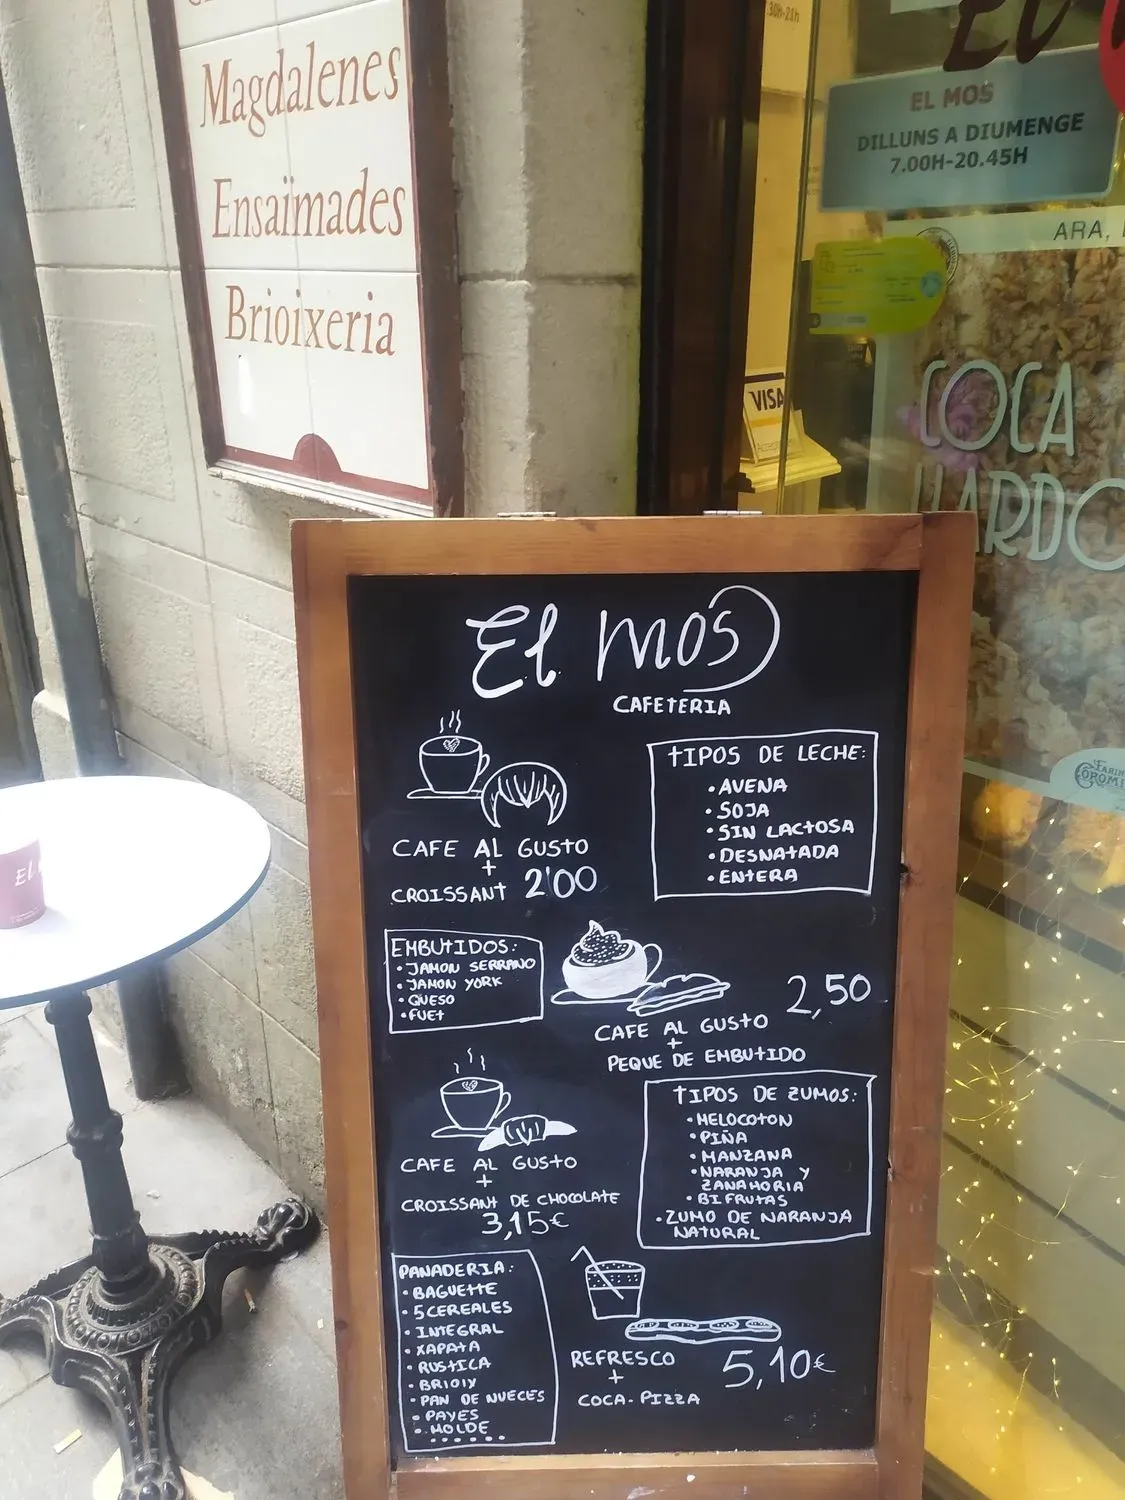 Magdalenes
Ensaïmades
Brioixeria
EL MOS
DILLUNS A DIUMENGE
7.00H-20.45H
ARA,
VISA
COCA
El mos
CAFETERIA
CAFE AL GUSTO
+
CROISSANT 2'00
TIPOS DE LECHE:
• AVENA
• SOJA
• SIN LACTOSA
• DESNATADA
• ENTERA
EMBUTIDOS:
• JAMON SERRANO
• JAMON YORK
• QUESO
• FUET
2,50
CAFE AL GUSTO
+
PEQUE DE EMBUTIDO
CAFE AL GUSTO
+
CROISSANT DE CHOCOLATE
3,15€
TIPOS DE ZUMOS:
• MELOCOTON
• PIÑA
• MANZANA
• NARANJA Y
ZANAHORIA
• BIFRUTAS
• ZUMO DE NARANJA
NATURAL
PANADERIA:
• BAGUETTE
• 5 CEREALES
• INTEGRAL
• XAPATA
• RUSTICA
• BRIOIX
• PAN DE NUECES
• PAYES
• MOLDE
......
REFRESCO
+
COCA-PIZZA
5,10€